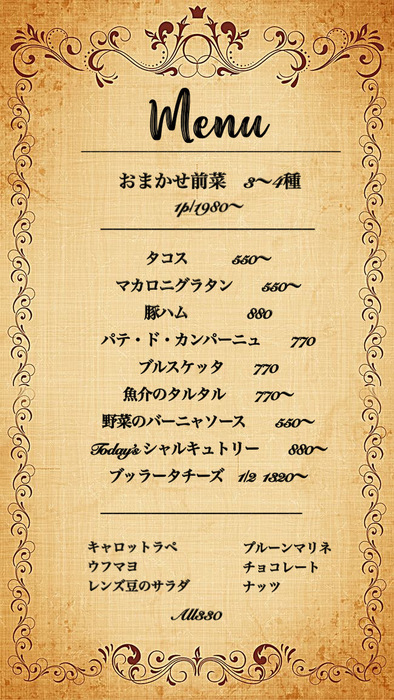 Menu
おまかせ前菜 3〜4種
1p/1980〜
タコス 550〜
マカロニグラタン 550〜
豚ハム 880
パテ・ド・カンパーニュ 770
ブルスケッタ 770
魚介のタルタル 770〜
野菜のバーニャソース 550〜
Today's シャルキュトリー 880〜
ブッラータチーズ 1/2 1320〜
キャロットラペ プルーンマリネ
ウフマヨ チョコレート
レンズ豆のサラダ ナッツ
All330